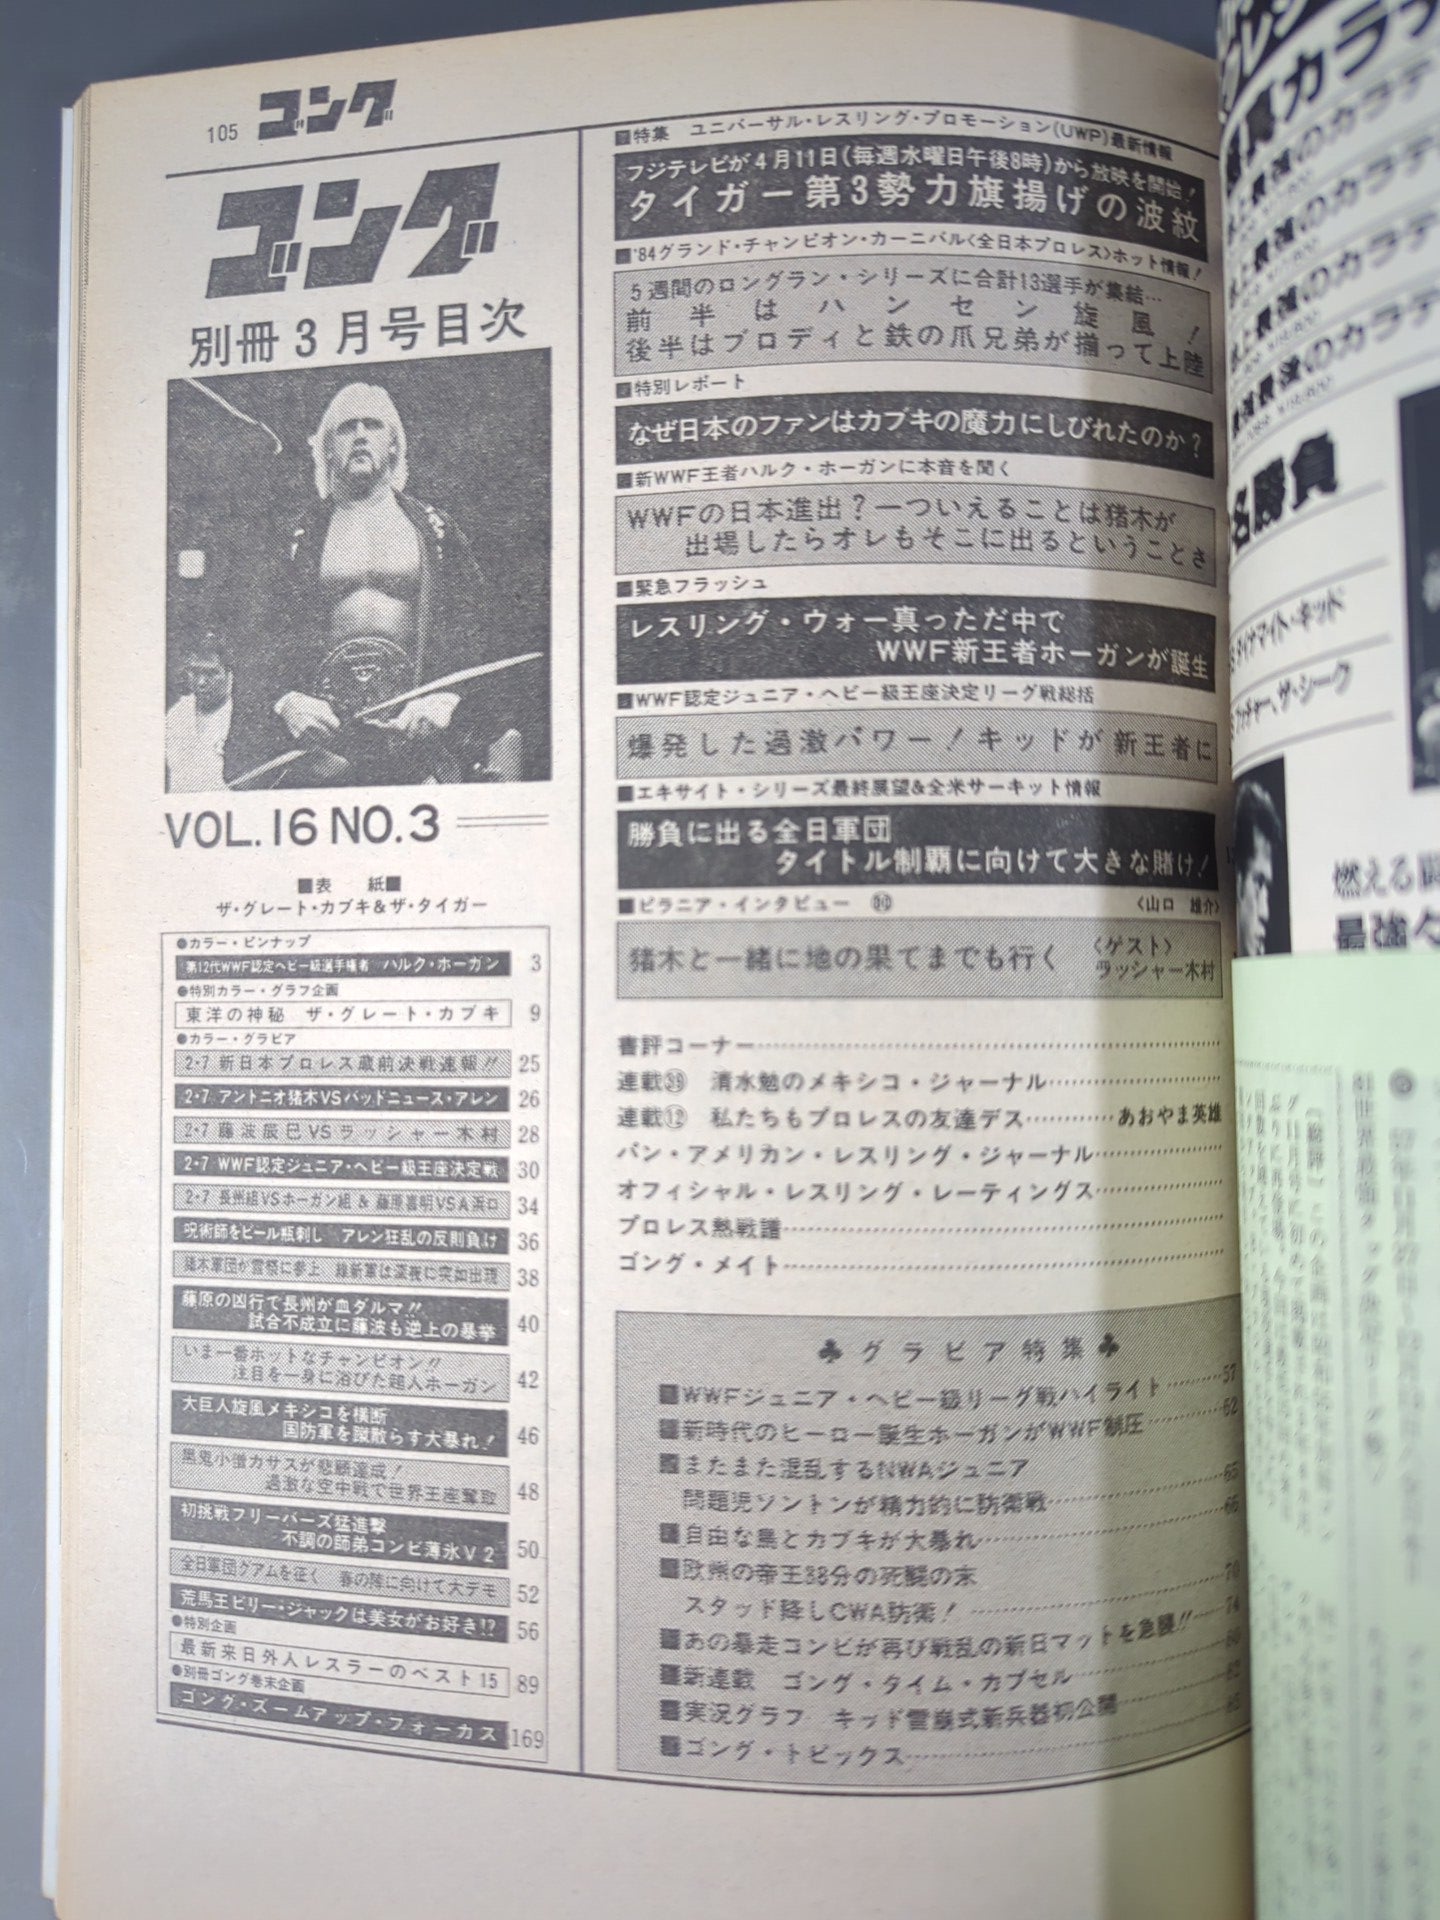 105 ゴング
ゴング
別冊3月号目次
VOL.16 NO.3
■表　紙■
ザ・グレート・カブキ&ザ・タイガー
●カラー・ピンナップ
第12代WWF認定ヘビー級選手権者　ハルク・ホーガン 3
●特別カラー・グラフ企画
東洋の神秘　ザ・グレート・カブキ 9
●カラー・グラビア
2・7 新日本プロレス蔵前決戦速報!! 25
2・7 アントニオ猪木VSバッドニュース・アレン 26
2・7 藤波辰巳VSラッシャー木村 28
2・7 WWF認定ジュニア・ヘビー級王座決定戦 30
2・7 長州組VSホーガン組 & 藤原喜明VSA浜口 34
呪術師をビール瓶刺し　アレン狂乱の反則負け 36
猪木軍団が雪祭に参上　維新軍は深夜に突如出現 38
藤原の凶行で長州が血ダルマ!!
試合不成立に藤波も逆上の暴挙 40
いま一番ホットなチャンピオン!!
注目を一身に浴びた超人ホーガン 42
大巨人旋風メキシコを横断
国防軍を蹴散らす大暴れ! 46
黒鬼小僧カサスが悲願達成!
過激な空中戦で世界王座奪取 48
初挑戦フリーバーズ猛進撃
不調の師弟コンビ薄氷V2 50
全日軍団グアムを征く　春の陣に向けて大デモ 52
荒馬王ビリー・ジャックは美女がお好き!? 56
●特別企画
最新来日外人レスラーのベスト15 89
●別冊ゴング巻末企画
ゴング・ズームアップ・フォーカス 169
■特集　ユニバーサル・レスリング・プロモーション(UWP)最新情報
フジテレビが4月11日(毎週水曜日午後8時)から放映を開始!
タイガー第3勢力旗揚げの波紋
■'84グランド・チャンピオン・カーニバル<全日本プロレス>ホット情報!
5週間のロングラン・シリーズに合計13選手が集結…
前半はハンセン旋風!
後半はブロディと鉄の爪兄弟が揃って上陸
■特別レポート
なぜ日本のファンはカブキの魔力にしびれたのか?
■新WWF王者ハルク・ホーガンに本音を聞く
WWFの日本進出?一ついえることは猪木が
出場したらオレもそこに出るということさ
■緊急フラッシュ
レスリング・ウォー真っただ中で
WWF新王者ホーガンが誕生
■WWF認定ジュニア・ヘビー級王座決定リーグ戦総括
爆発した過激パワー!キッドが新王者に
■エキサイト・シリーズ最終展望&全米サーキット情報
勝負に出る全日軍団
タイトル制覇に向けて大きな賭け!
■ピラニア・インタビュー 〈山口　雄介〉
猪木と一緒に地の果てまでも行く　〈ゲスト〉
ラッシャー木村
書評コーナー
連載㊴　清水勉のメキシコ・ジャーナル
連載⑫　私たちもプロレスの友達デス…………あおやま英雄
パン・アメリカン・レスリング・ジャーナル
オフィシャル・レスリング・レーティングス
プロレス熱戦譜
ゴング・メイト
♣グラビア特集♣
■WWFジュニア・ヘビー級リーグ戦ハイライト………57
■新時代のヒーロー誕生ホーガンがWWF制圧………62
■またまた混乱するNWAジュニア
問題児ソントンが精力的に防衛戦………65
■自由な鳥とカブキが大暴れ………66
■欧州の帝王88分の死闘の末
スタッド降しCWA防衛!………70
■あの暴走コンビが再び戦乱の新日マットを急襲!!……74
■新連載　ゴング・タイム・カプセル………80
■実況グラフ　キッド雪崩式新兵器初公開………82
■ゴング・トピックス………
名勝負
ダイナマイト・キッド
ザ・シーク
燃える闘
最強